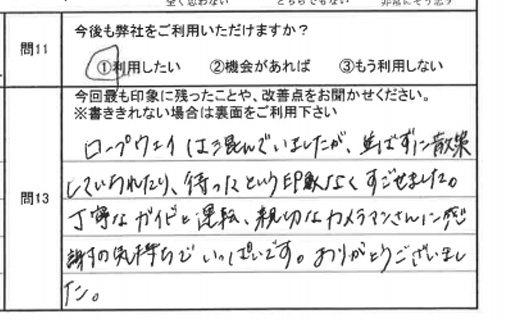 全く思わない どちらでもない 非常にそう思う
問11
今後も弊社をご利用いただけますか?
①利用したい ②機会があれば ③もう利用しない
問13
今回最も印象に残ったことや、改善点をお聞かせください。
※書ききれない場合は裏面をご利用下さい
ロープウェイは混んでいましたが、並ばずに散策
していられたり、待ったという印象なくすごせました。
丁寧なガイドと運転、親切なカメラマンさんに感
謝の気持ちでいっぱいです。ありがとうございまし
た。